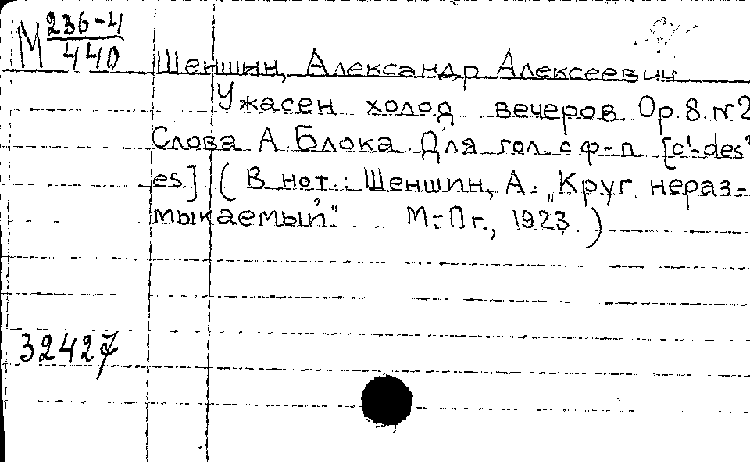 М 236-4
440
Шеншин, Александр Алексеевич
Ужасен холод вечеров Ор. 8 №2
Слова А. Блока. Для гол. с ф-п [c'-des"
es] (В нот.: Шеншин, А. „Круг нераз-
мыкаемый." М.-Пг., 1923.)
32427